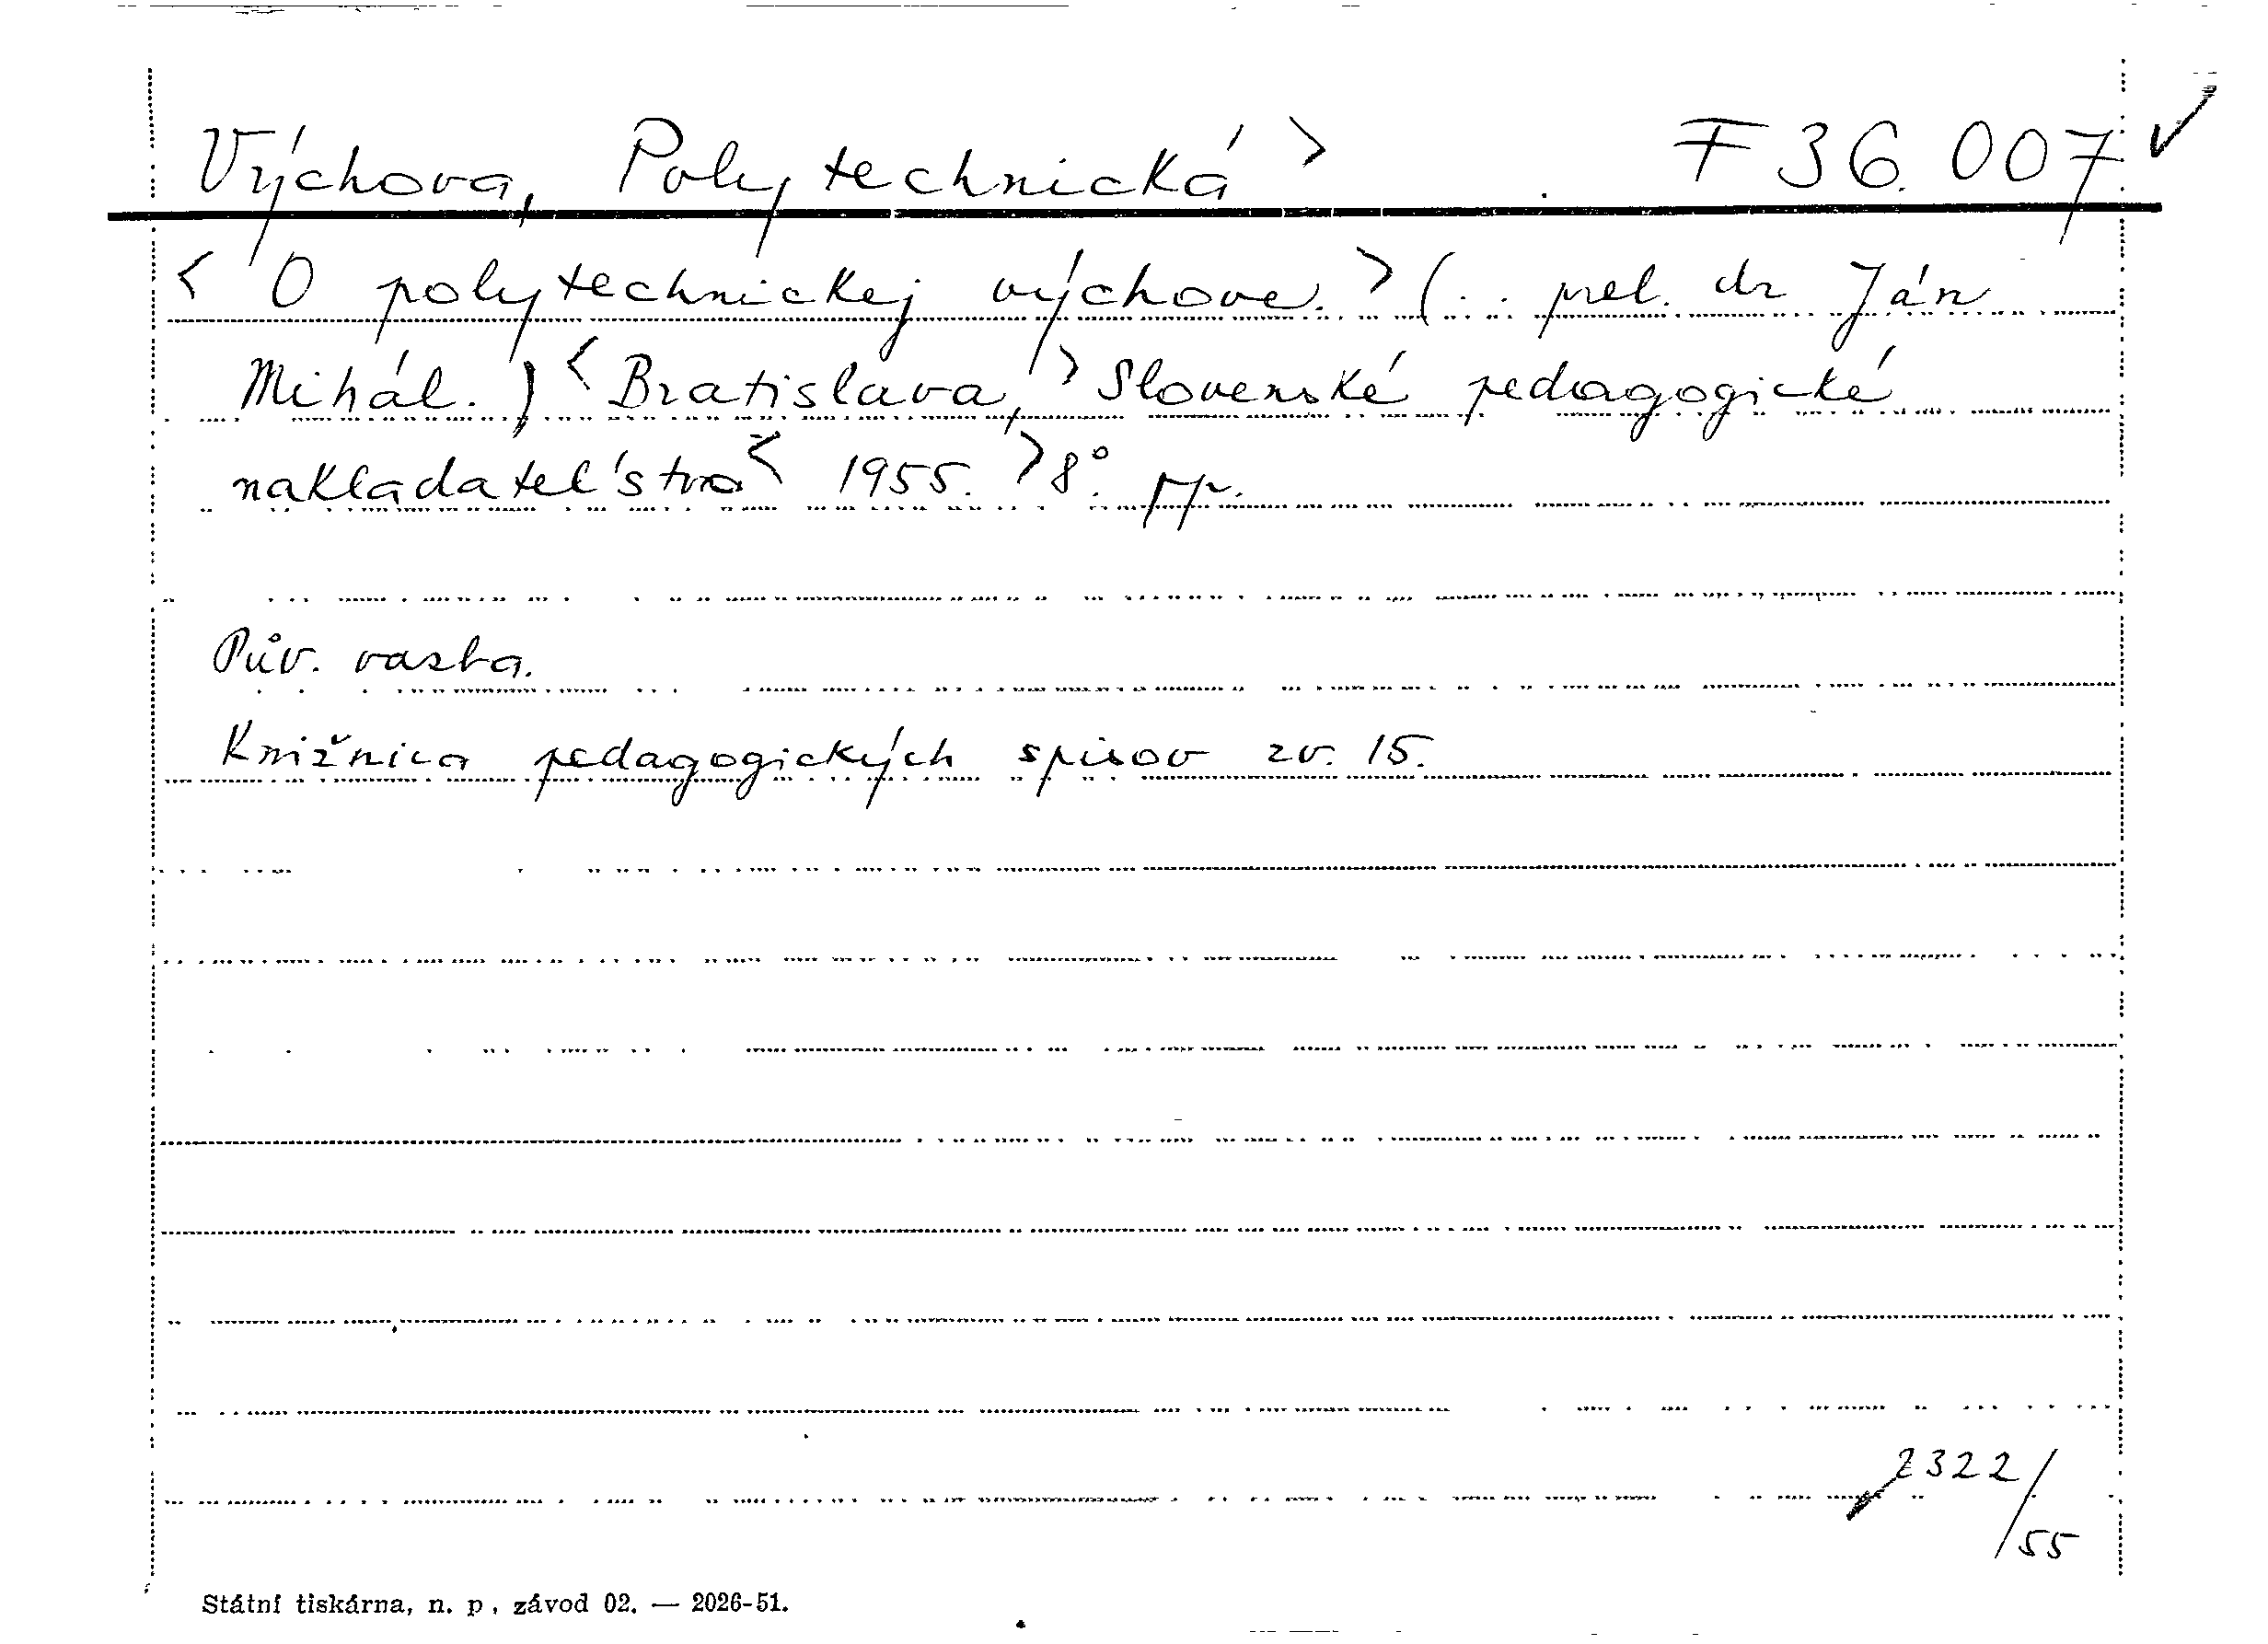 Výchova, Polytechnická > F 36.007 ✓
< O polytechnickej výchove. > (.. prel. dr Ján
Mihál.) < Bratislava, > Slovenské pedagogické
nakladateľstvo < 1955. > 8°. pp.
Pův. vazba.
Knižnica pedagogických spisov zv. 15.
2322/
55
Státní tiskárna, n. p., závod 02. — 2026-51.